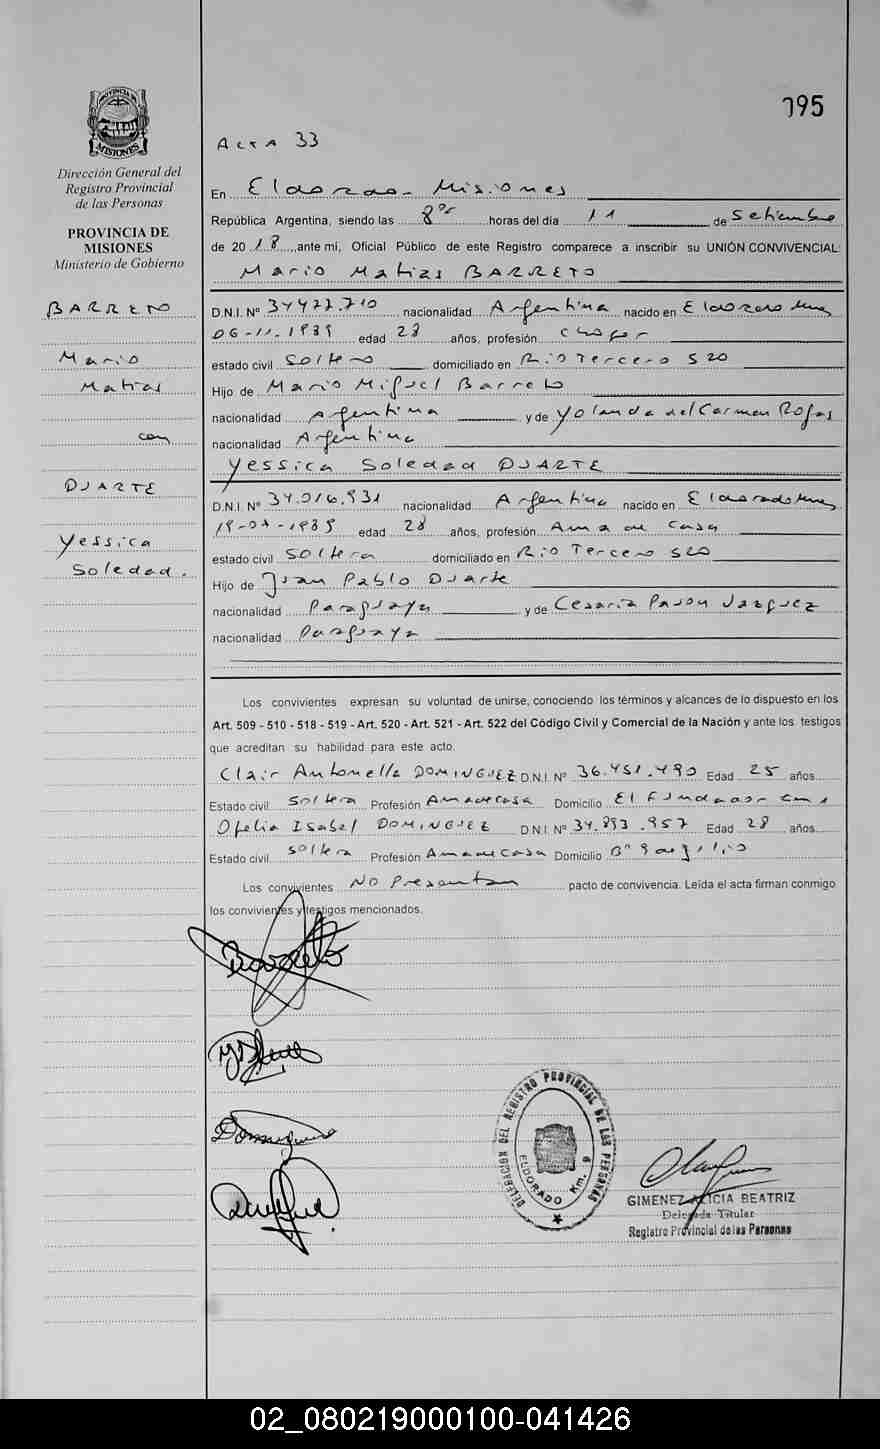 195
PROVINCIA DE
MISIONES
Dirección General del
Registro Provincial
de las Personas
PROVINCIA DE
MISIONES
Ministerio de Gobierno
BARRETO
Mario
Matias
con
DUARTE
Yessica
Soledad.
Acta 33
En Eldorado - Misiones
República Argentina, siendo las 8 horas del día 11 de Setiembre
de 2018, ante mí, Oficial Público de este Registro comparece a inscribir su UNIÓN CONVIVENCIAL:
Mario Matias BARRETO
D.N.I. Nº nacionalidad Argentina nacido en Eldorado
06-11-1989 edad 28 años, profesión Chofer
estado civil Soltero domiciliado en Rio Tercero 520
Hijo de Mario Miguel Barreto
nacionalidad Argentina y de Yolanda del Carmen Rojas
nacionalidad Argentina
Yessica Soledad DUARTE
D.N.I. Nº 34.016.931 nacionalidad Argentina nacido en Eldorado
edad 28 años, profesión Ama de Casa
estado civil Soltera domiciliado en Rio Tercero 520
Hijo de Juan Pablo Duarte
nacionalidad Paraguaya y de Cesaria Vazquez
nacionalidad Paraguaya
Los convivientes expresan su voluntad de unirse, conociendo los términos y alcances de lo dispuesto en los
Art. 509 - 510 - 518 - 519 - Art. 520 - Art. 521 - Art. 522 del Código Civil y Comercial de la Nación y ante los testigos
que acreditan su habilidad para este acto.
Clair Antonella DOMINGUEZ D.N.I. Nº 36.451.490 Edad 25 años
Estado civil Soltera Profesión Ama de casa Domicilio El Fundador
Ofelia Isabel DOMINGUEZ D.N.I. Nº 34.893.957 Edad 28 años
Estado civil soltera Profesión Ama de Casa Domicilio Bº 9 de Julio
Los convivientes No Presentan pacto de convivencia. Leída el acta firman conmigo
los convivientes y testigos mencionados.
Barreto
DELEGACION DEL REGISTRO PROVINCIAL DE LAS PERSONAS
ELDORADO Km. 6
GIMENEZ ALICIA BEATRIZ
Delegada Titular
Registro Provincial de las Personas
02_080219000100-041426